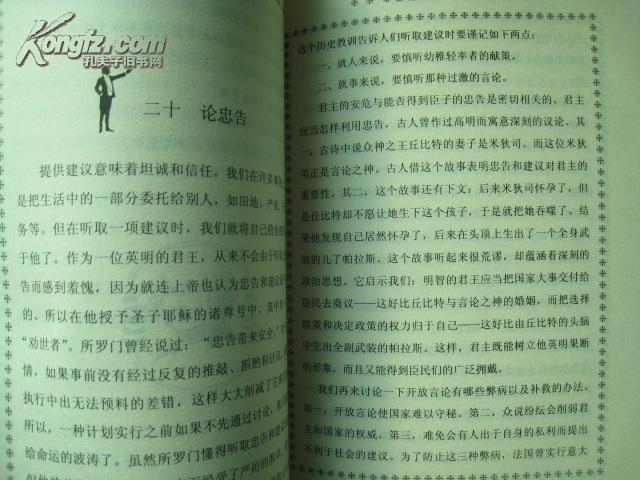 Kongfz.com
孔夫子旧书网
二十 论忠告
提供建议意味着坦诚和信任。我们在许多事
是把生活中的一部分委托给别人，如田地、产业、
务等。但在听取一项建议时，我们就将自己的全
于他了。作为一位英明的君王，从来不会由于听
告而感到羞愧，因为就连上帝也认为忠告和建议
的。所以在他授予圣子耶稣的诸尊号中，其中有
“劝世者”。所罗门曾经说过：“忠告带来安全。”
情，如果事前没有经过反复的推敲、斟酌和计议，
执行中出无法预料的差错，这样大大削减了它
所以，一种计划实行之前如果不先通过讨论，
给命运的波涛了。虽然所罗门懂得听取忠告和建议
这个历史教训告诉人们听取建议时要谨记如下两点：
一、就人来说，要慎听幼稚轻率者的献策。
二、就事来说，要慎听那种过激的言论。
君主的安危与能否得到臣子的忠告是密切相关的。君主
应当怎样利用忠告，古人曾作过高明而寓意深刻的议论。其
一。古诗中说众神之王丘比特的妻子是米狄司。而这位米狄
司正是言论之神。古人借这个故事表明忠告和建议对君主的
重要性。其二，这个故事还有下文：后来米狄司怀孕了，但
是丘比特却不愿让她生下这个孩子，于是就把她吞噬了。结
果他发现自己居然怀孕了，后来在头顶上生出了一个全身武
装的儿了帕拉斯。这个故事听起来很荒谬，却蕴涵着深刻的
政治思想。它启示我们：明智的君王应当把国家大事交付给
臣民去商议——这好比丘比特与言论之神的婚姻，而把选择
政策和决定政策的权力归于自己——这好比由丘比特的头脑
中生出全副武装的帕拉斯。这样，君主既能树立他英明果断
的形象，而且又能得到臣民们的广泛拥戴。
我们再来讨论一下开放言论有哪些弊病以及补救的办法。
第一，开放言论使国家难以守秘。第二，众说纷纭会削弱君
主和国家的权威。第三，难免会有人出于自身的私利而提出
不利于社会的建议。为了防止这三种弊病，法国曾实行意大